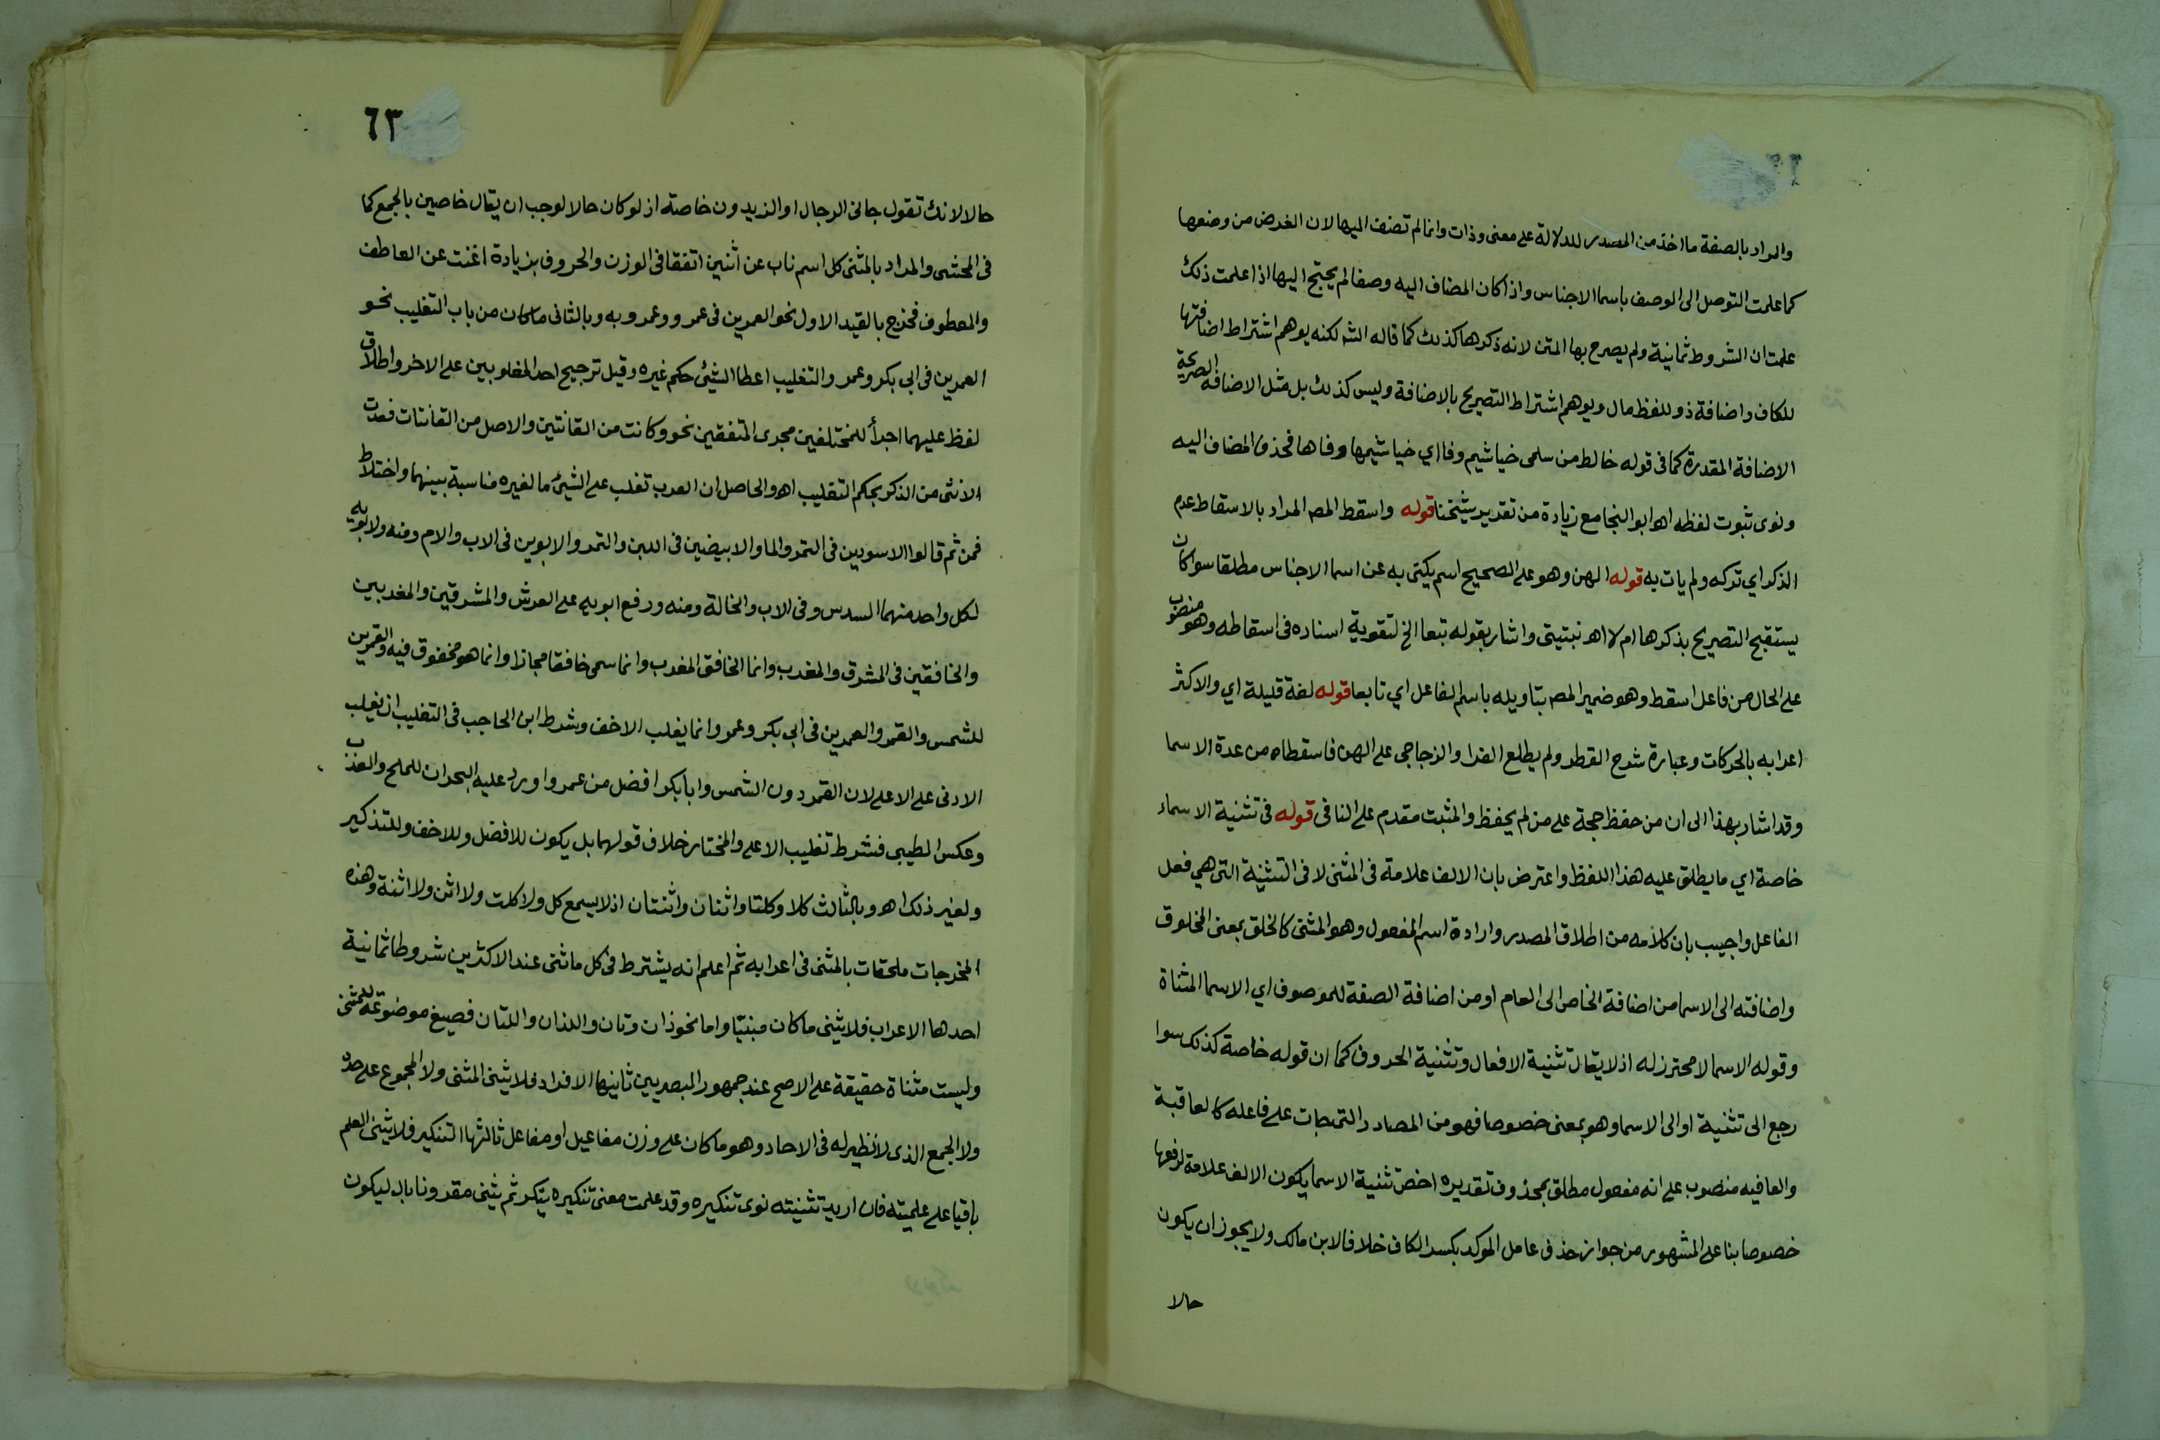 والمراد بالصفة ما اخذ من المصدر للدلالة على معنى وذات وانما لم تضف اليها لان الغرض من وضعها
كما علمت التوصل الى الوصف باسما الاجناس واذا كان المضاف اليه وصفا لم يحتج اليها اذا علمت ذلك
علمت ان الشروط ثمانية ولم يصرح بها المتن لانه ذكرها كذلك كما قاله الشـ لكنه يوهم اشتراط اضافتها
للكاف واضافة ذو للفظ مال ويوهم اشتراط التصريح بالاضافة وليس كذلك بل مثل الاضافة الصريحة
الاضافة المقدرة كما فى قوله خالط من سلمى خياشيم وفا اي خياشيمها وفاها فحذف المضاف اليه
ونوى ثبوت لفظه اهـ ابو النجا مع زيادة من تقدير شيخنا قوله واسقط المصـ المراد بالاسقاط عدم
الذكر اي تركه ولم يات به قوله الهن وهو على الصحيح اسم يكنى به عن اسما الاجناس مطلقا سوا كان
يستقبح التصريح بذكرها ام لا اهـ نبتيتى واشار بقوله تبعا الخ لتقوية اسناده فى اسقاطه وهو منصوب
على الحال من فاعل اسقط وهو ضمير المصـ بتاويله باسم الفاعل اي تابعا قوله لغة قليلة اي والاكثر
اعرابه بالحركات وعبارة شرح القطر ولم يطلع الفرا والزجاجى على الهن فاسقطاه من عدة الاسما
وقد اشار بهذا الى ان من حفظ حجة على من لم يحفظ والمثبت مقدم على النافى قوله فى تثنية الاسماء
خاصة اي ما يطلق عليه هذا اللفظ واعترض بان الالف علامة فى المثنى لا فى التثنية التى هي فعل
الفاعل واجيب بان كلامه من اطلاق المصدر وارادة اسم المفعول وهو المثنى كالخلق بمعنى المخلوق
واضافته الى الاسما من اضافة الخاص الى العام او من اضافة الصفة للموصوف اي الاسما المثناة
وقوله الاسما لا محترز له اذ لا يقال تثنية الافعال وتثنية الحروف كما ان قوله خاصة كذلك سوا
رجع الى تثنية او الى الاسما وهو بمعنى خصوصا فهو من المصادر التى جات على فاعله كالعاقبة
والعافيه منصوب على انه مفعول مطلق بمحذوف تقديره اخص تثنية الاسما يكون الالف علامة لرفعها
خصوصا بنا على المشهور من جواز حذف عامل الموكد بكسر الكاف خلافا لابن مالك ولا يجوز ان يكون
حالا
٦٣
حالا لانك تقول جانى الرجال او الزيدون خاصة اذ لو كان حالا لوجب ان يقال خاصين بالجمع كما
فى المحشى والمراد بالمثنى كل اسم ناب عن اثنين اتفقا فى الوزن والحروف بزيادة اغنت عن العاطف
والمعطوف فخرج بالقيد الاول نحو العمرين فى عمرو وعمرو به وبالثانى ما كان من باب التغليب نحو
العمرين فى ابى بكر وعمر والتغليب اعطا الشئ حكم غيره وقيل ترجيح احد المغلوبين على الاخر واطلاق
لفظ عليهما اجرأ للمختلفين مجرى المتفقين نحو وكانت من القانتين والاصل من القانتات فعدت
الانثى من الذكر بحكم التغليب اهـ والحاصل ان العرب تغلب على الشئ ما لغيره مناسبة بينهما واختلاط
فمن ثم قالوا الاسودين فى التمر والما والابيضين فى اللبن والتمر والابوين فى الاب والام ومنه ولابويه
لكل واحد منهما السدس وفى الاب والخالة ومنه ورفع ابويه على العرش والمشرقين والمغربين
والخافقين فى المشرق والمغرب وانما الخافق المغرب وانما سمى خافقا مجازا وانما هو مخفوق فيه والقمرين
للشمس والقمر والعمرين فى ابى بكر وعمر وانما يغلب الاخف وشرط ابن الحاجب فى التغليب ان يغلب
الادنى على الاعلى لان القمر دون الشمس وابا بكر افضل من عمر واورد عليه البحران للملح والعذب
وعكس الطيبى فشرط تغليب الاعلى والمختار خلاف قولهما بل يكون للافضل وللاخف وللتذكير
ولغير ذلك اهـ وبالثالث كلا وكلتا واثنان واثنتان اذ لا يسمع كل ولا كلت ولا اثن ولا اثنة وهذه
المخرجات ملحقات بالمثنى فى اعرابه ثم اعلم انه يشترط فى كل ما ثنى عند الاكثرين شروط ثمانية
احدها الاعراب فلا يثنى ما كان مبنيا واما نحو ذان وتان واللذان واللتان فصيغ موضوعة للمثنى
وليست مثناة حقيقة على الاصح عند جمهور البصريين ثانيها الافراد فلا يثنى المثنى ولا المجموع على حده
ولا الجمع الذى لا نظير له فى الاحاد وهو ما كان على وزن مفاعيل او مفاعل ثالثها التنكير فلا يثنى العلم
باقيا على علميته فان اريد تثنيته نوى تنكيره وقد علمت معنى تنكيره ينكر ثم يثنى مقرونا بال ليكون